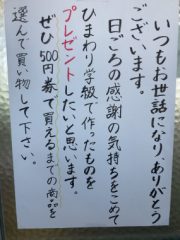 いつもお世話になり、ありがとう
ございます。
日ごろの感謝の気持ちをこめて
ひまわり学級で作ったものを
プレゼントしたいと思います。
ぜひ500円券で買えるまでの商品を
選んで買い物して下さい。